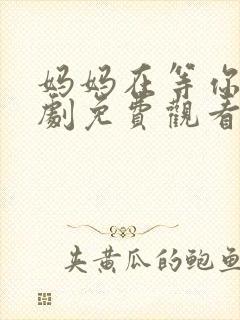 妈妈在等你
劇免費觀看
夹黄瓜的鲍鱼